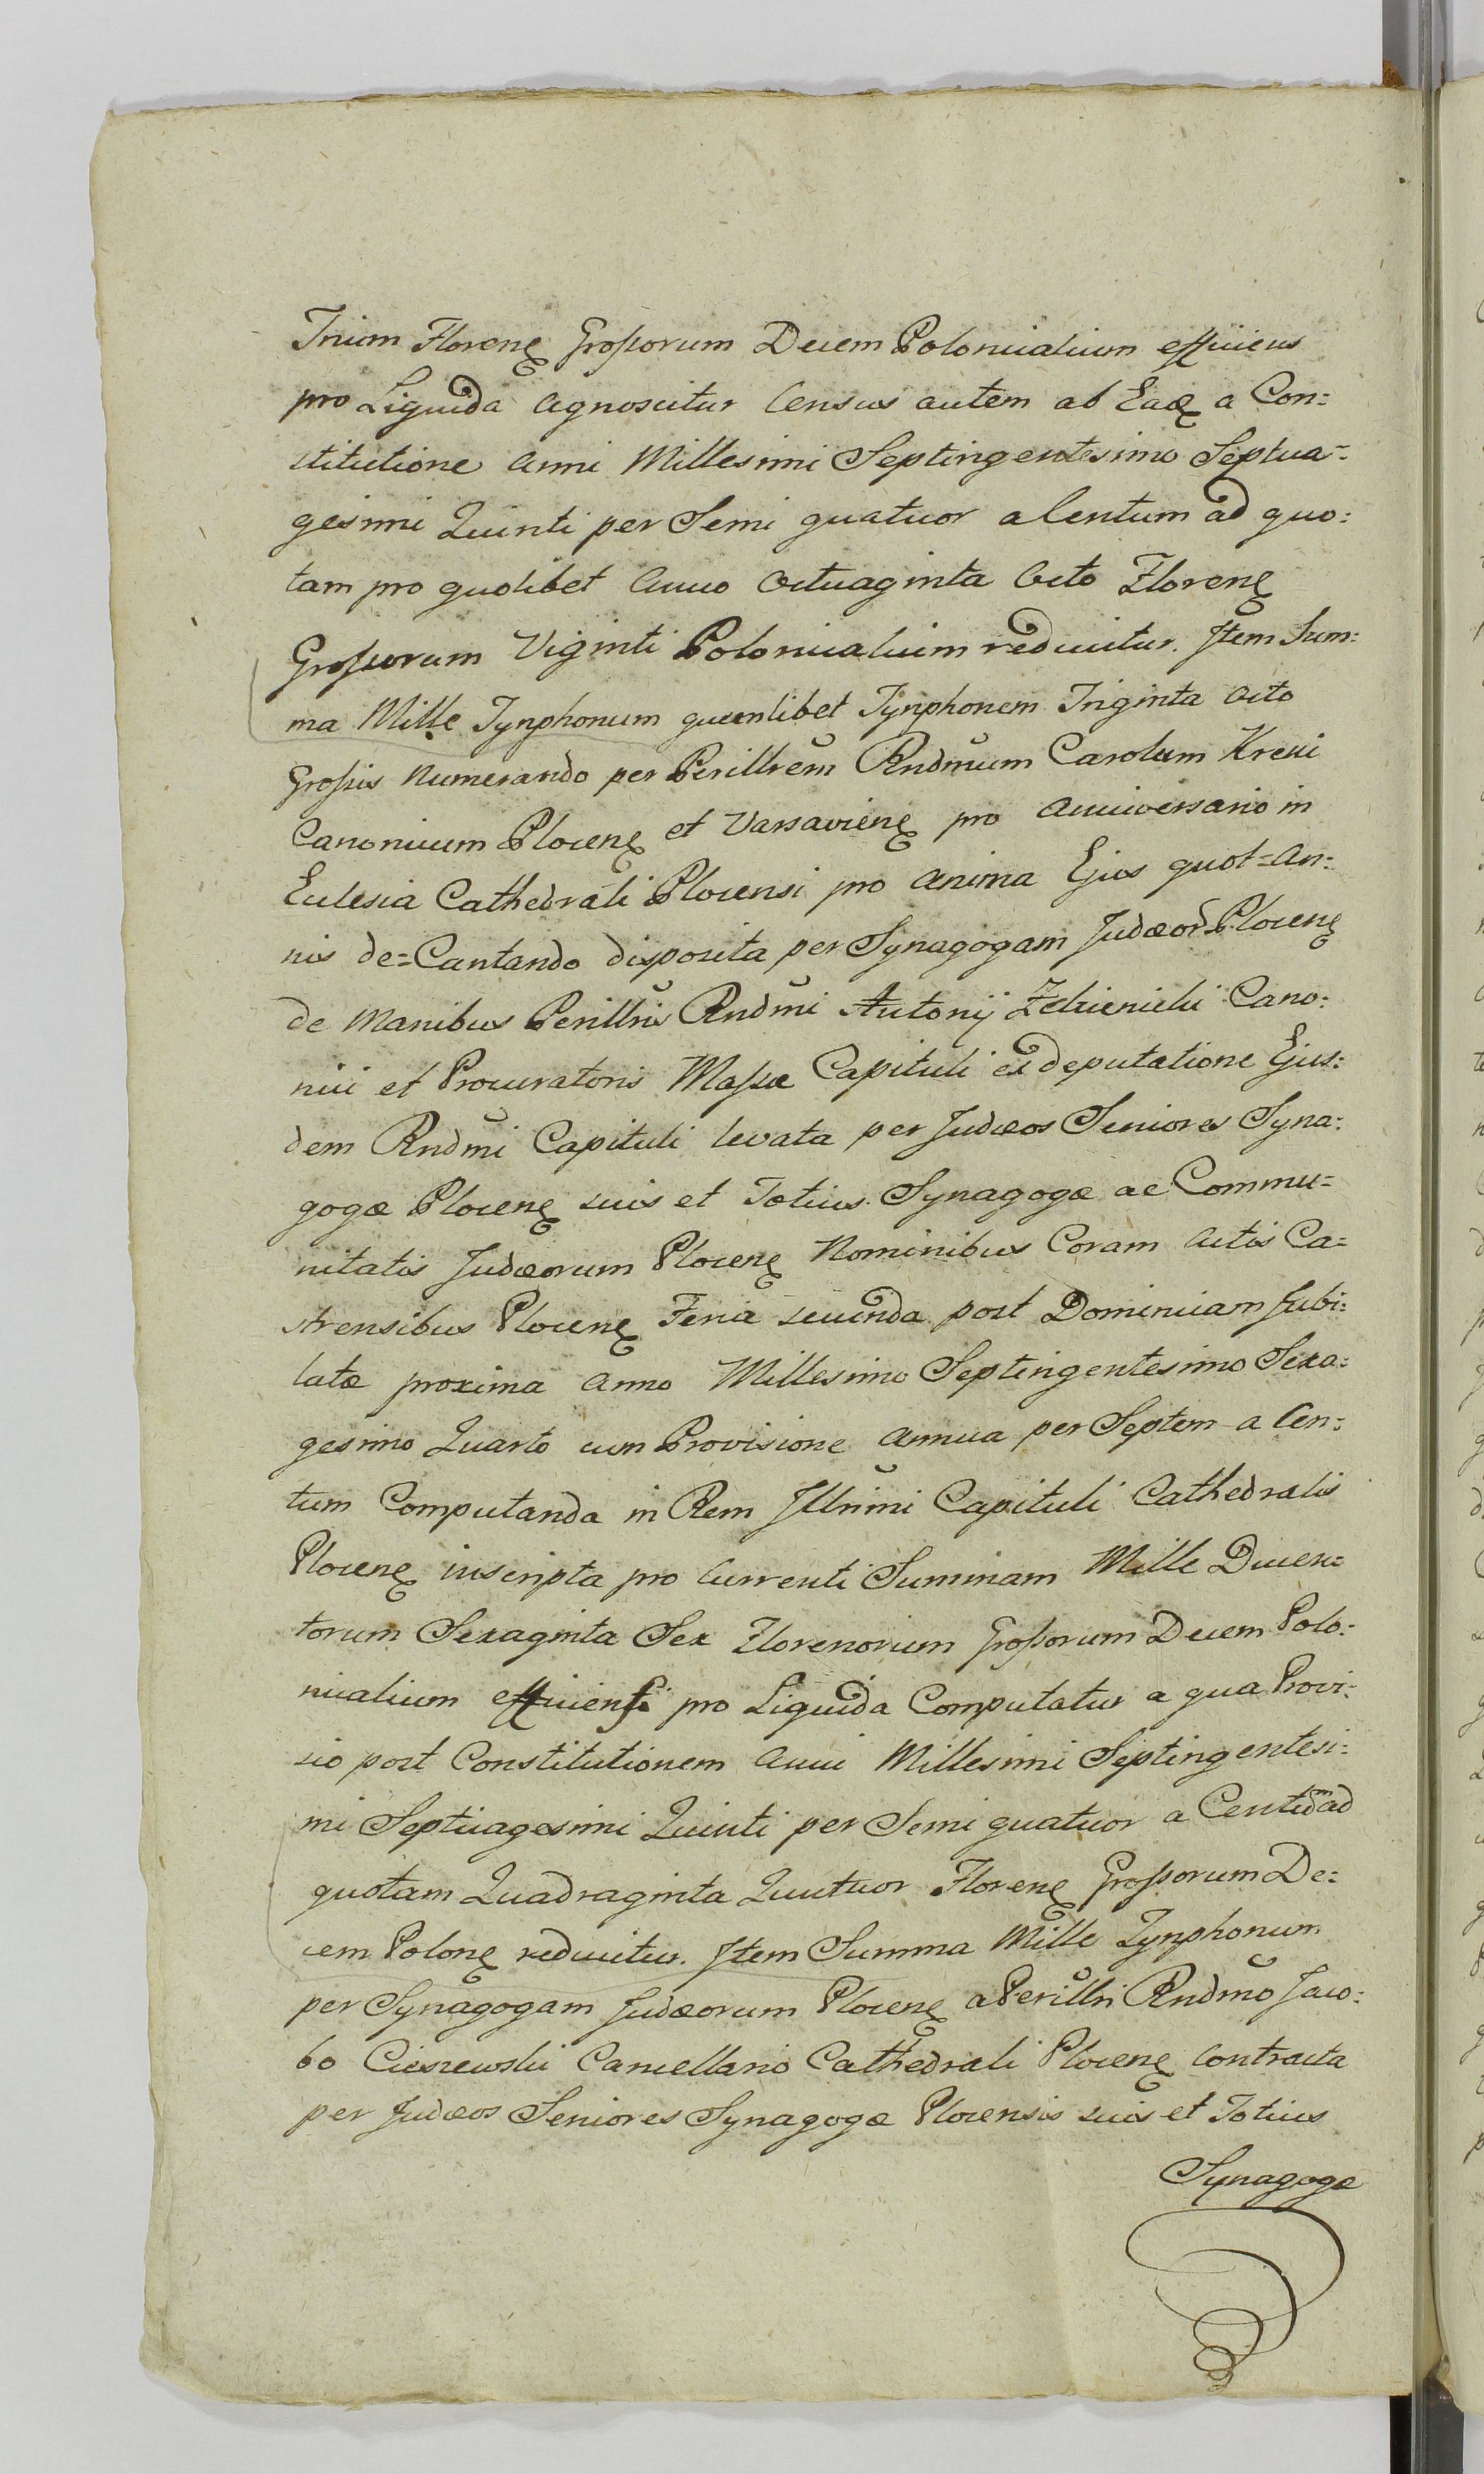 Trium Floren Grossorum Decem Polonicalium efficiens
pro Liquida agnoscitur Census autem ab Ead a Con=
stitutione Anni Millesimi Septingentesimo Septua=
gesimi Quinti per Semi quatuor a Centum ad quo=
tam pro quolibet Anno Octuaginta Octo Floren
Grossorum Viginti Polonicalium reducitur. Item Sum=
ma Mille Tynphonum quemlibet Tynphonem Triginta Octo
Grossis Numerando per Perillrem Rndmum Carolum Kreni
Canonicum Plocen et Varsavien pro Anniversario in
Eclesia Cathedrali Plocensi pro Anima Ejus quot=An=
nis de=Cantando disposita per Synagogam Judæor Plocen
de Manibus Perillris Rndmi Antonij Zdzienicki Cano=
nici et Procuratoris Massæ Capituli ex deputatione Ejus=
dem Rndmi Capituli levata per Judæos Seniores Syna=
gogæ Plocen suis et Totius Synagogæ ac Commu=
nitatis Judæorum Plocen Nominibus Coram Actis Ca=
strensibus Plocen Feria secunda post Dominicam Jubi=
latæ proxima Anno Millesimo Septingentesimo Sexa=
gesimo Quarto cum Provisione Annua per Septem a Cen=
tum Computanda in Rem Illrimi Capituli Cathedralis
Plocen inscripta pro Currenti Summam Mille Ducen=
torum Sexaginta Sex Florenorum Grossorum Decem Polo=
nicalium efficiens pro Liquida Computatur a qua Provi=
sio post Constitutionem Anni Millesimi Septingentesi=
mi Septuagesimi Quinti per Semi quatuor a Centum ad
quotam Quadraginta Quutuor Floren Grossorum De=
cem Polon reducitur. Item Summa Mille Tynphonum
per Synagogam Judæorum Plocen a Perillri Rndmo Jaco=
bo Cieszewski Cancellario Cathedrali Plocen Contracta
per Judæos Seniores Synagogæ Plocensis suis et Totius
Synagogæ